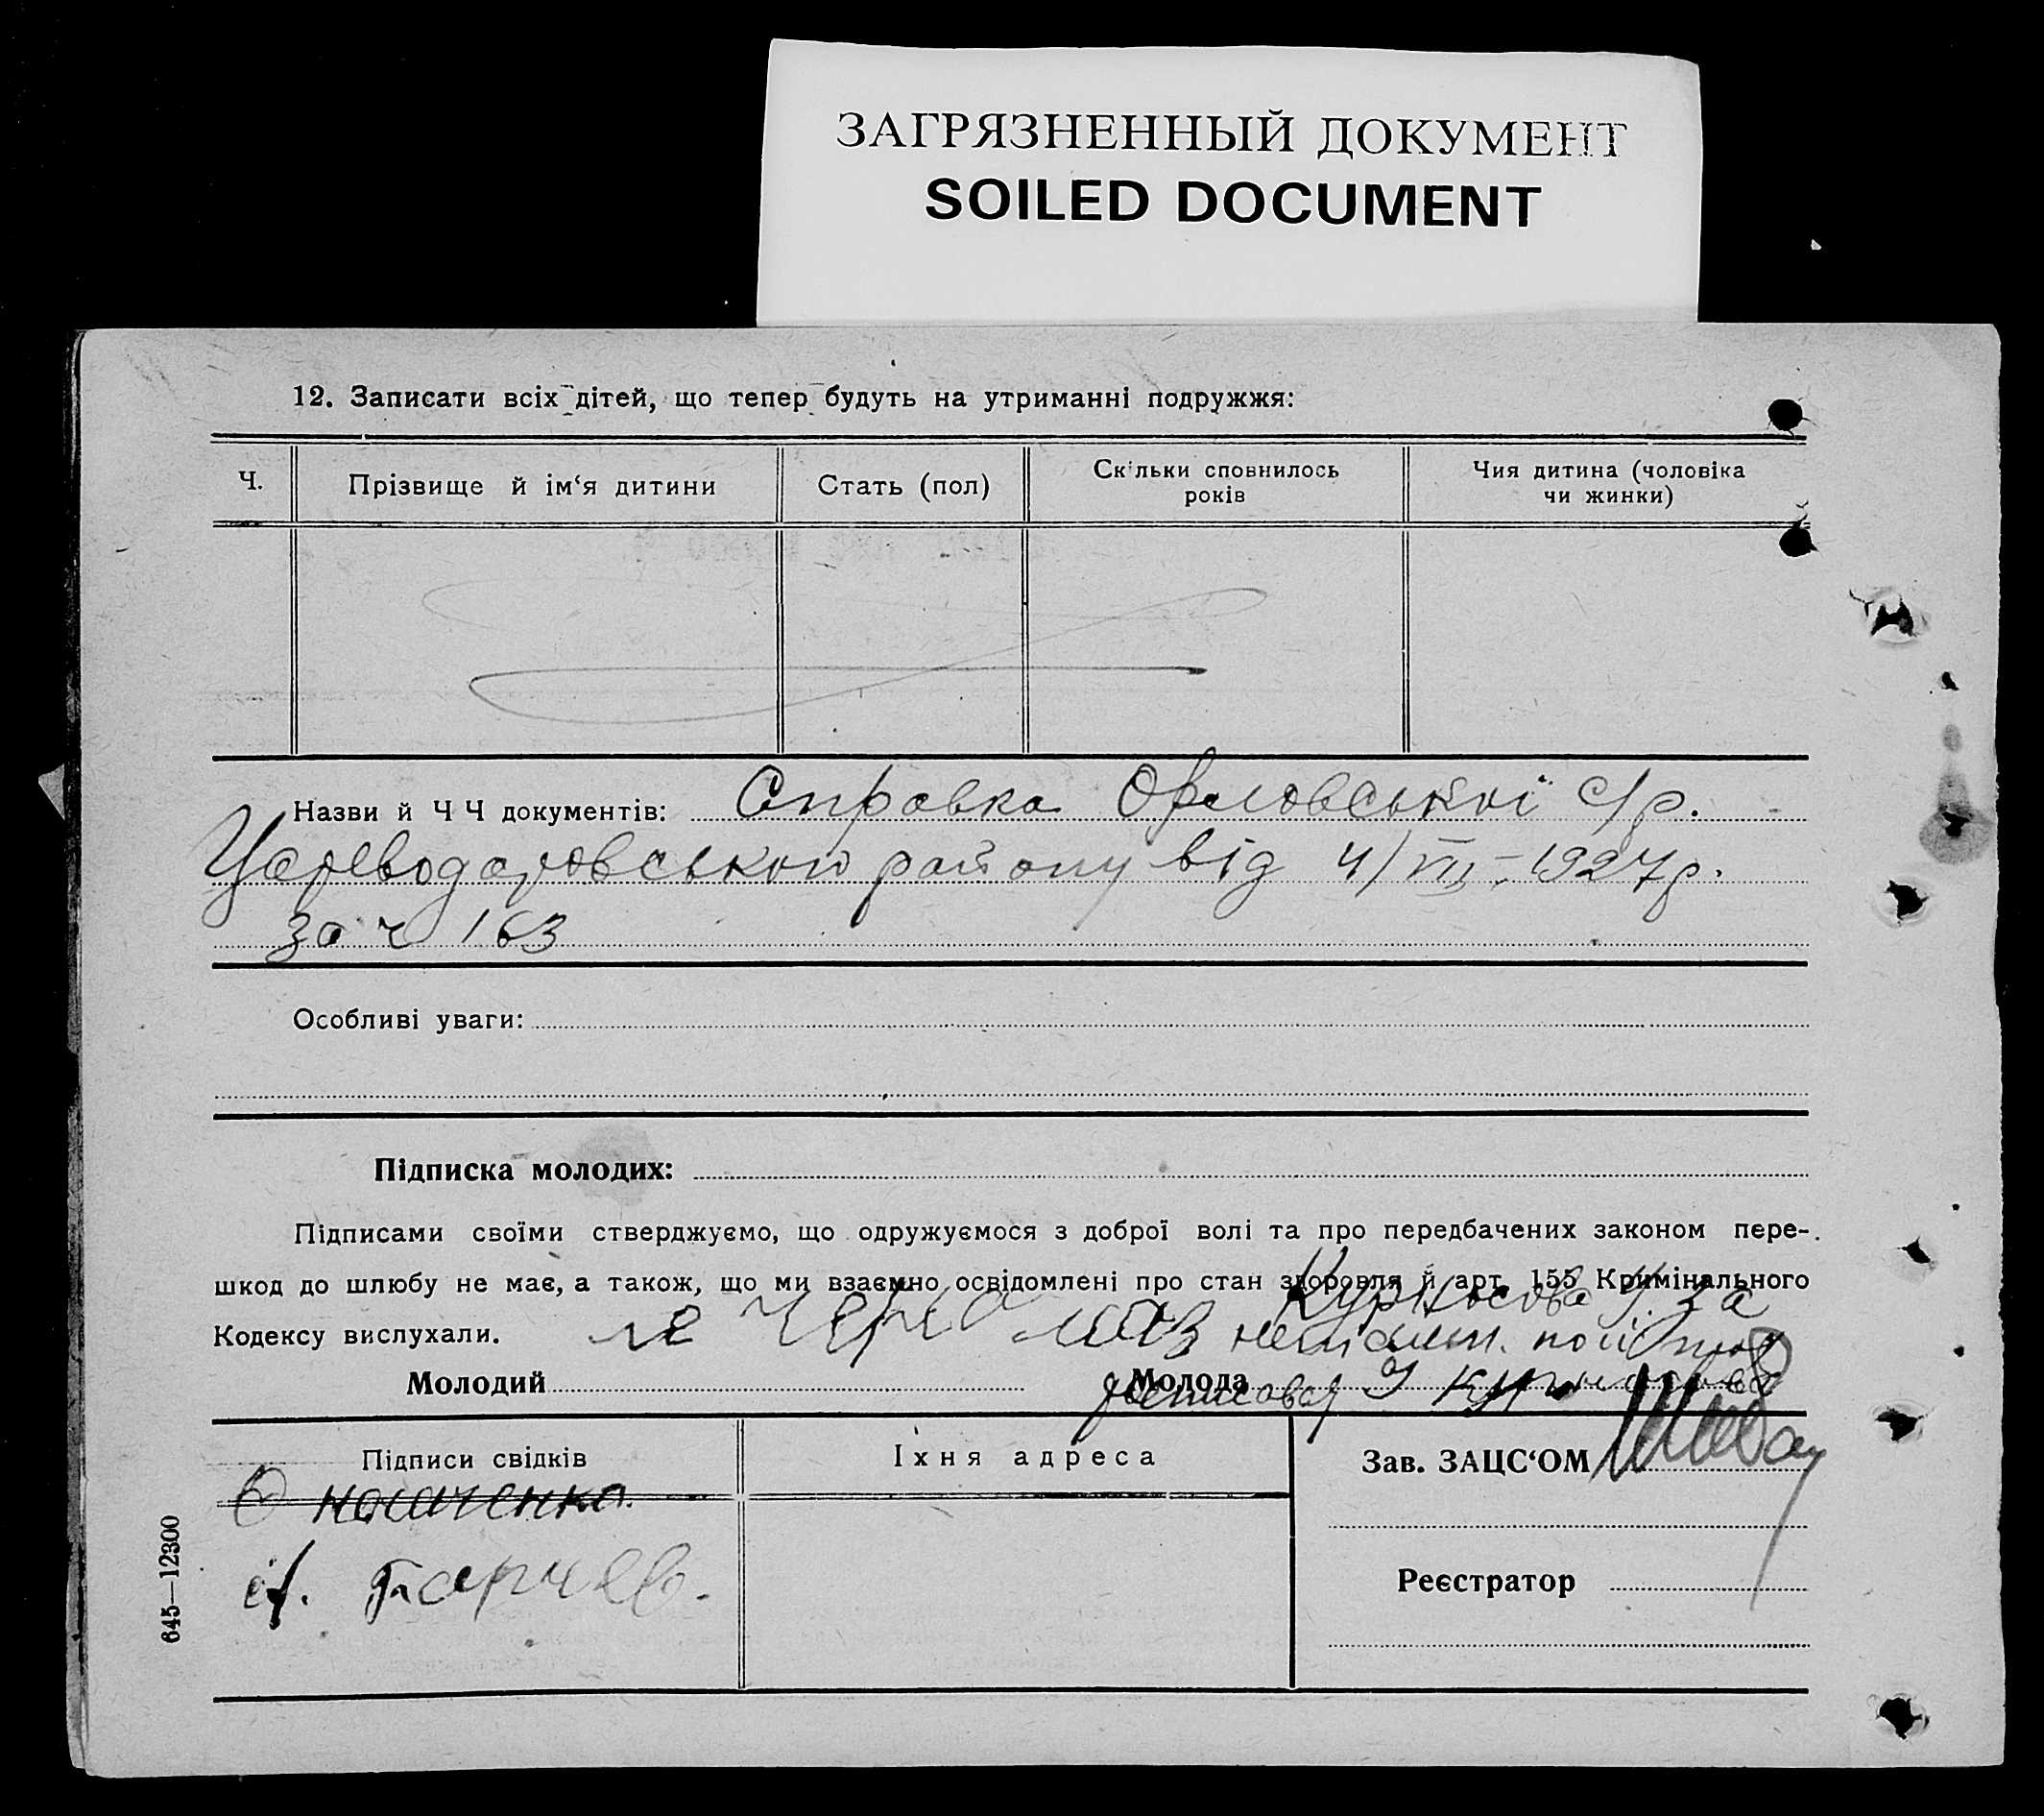 ЗАГРЯЗНЕННЫЙ ДОКУМЕНТ
SOILED DOCUMENT
12. Записати всіх дітей, що тепер будуть на утриманні подружжя:
Ч.
Прізвище й ім‘я дитини
Стать (пол)
Скільки сповнилось
років
Чия дитина (чоловіка
чи жинки)
Назви й Ч Ч документів: Справка Орловської с/р.
району від 4/VIII-1927р.
за ч 163
Особливі уваги:
Підписка молодих:
Підписами своїми стверджуємо, що одружуємося з доброї волі та про передбачених законом пере-
шкод до шлюбу не має, а також, що ми взаємно освідомлені про стан здоровля й арт. 155 Кримінального
Кодексу вислухали.
Молодий
Молода
Підписи свідків
Їхня адреса
Зав. ЗАЦС‘ОМ
Реєстратор
645—12300